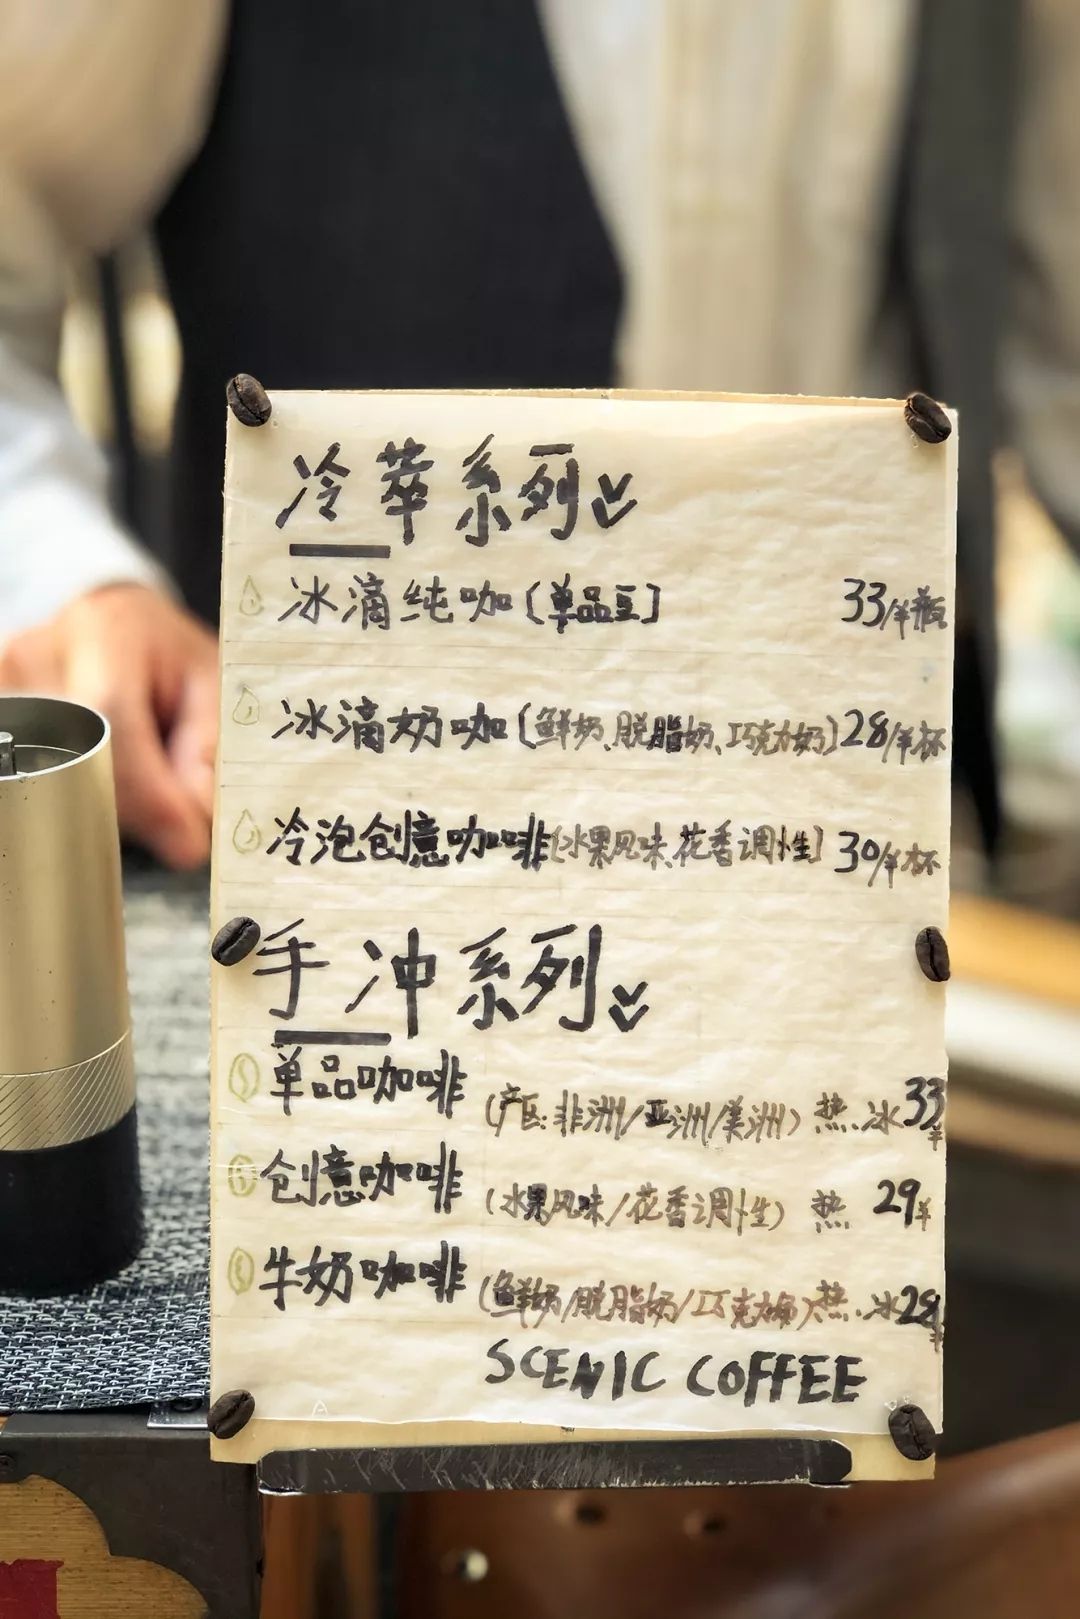 冷萃系列
冰滴纯咖[单品豆] 33/半瓶
冰滴奶咖[鲜奶、脱脂奶、巧克力奶] 28/半杯
冷泡创意咖啡[水果风味、花香调性] 30/半杯
手冲系列
单品咖啡 (产区:非洲/亚洲/美洲) 热.冰 33半
创意咖啡 (水果风味/花香调性) 热 29半
牛奶咖啡 (鲜奶/脱脂奶/巧克力奶) 热.冰 28半
SCENIC COFFEE